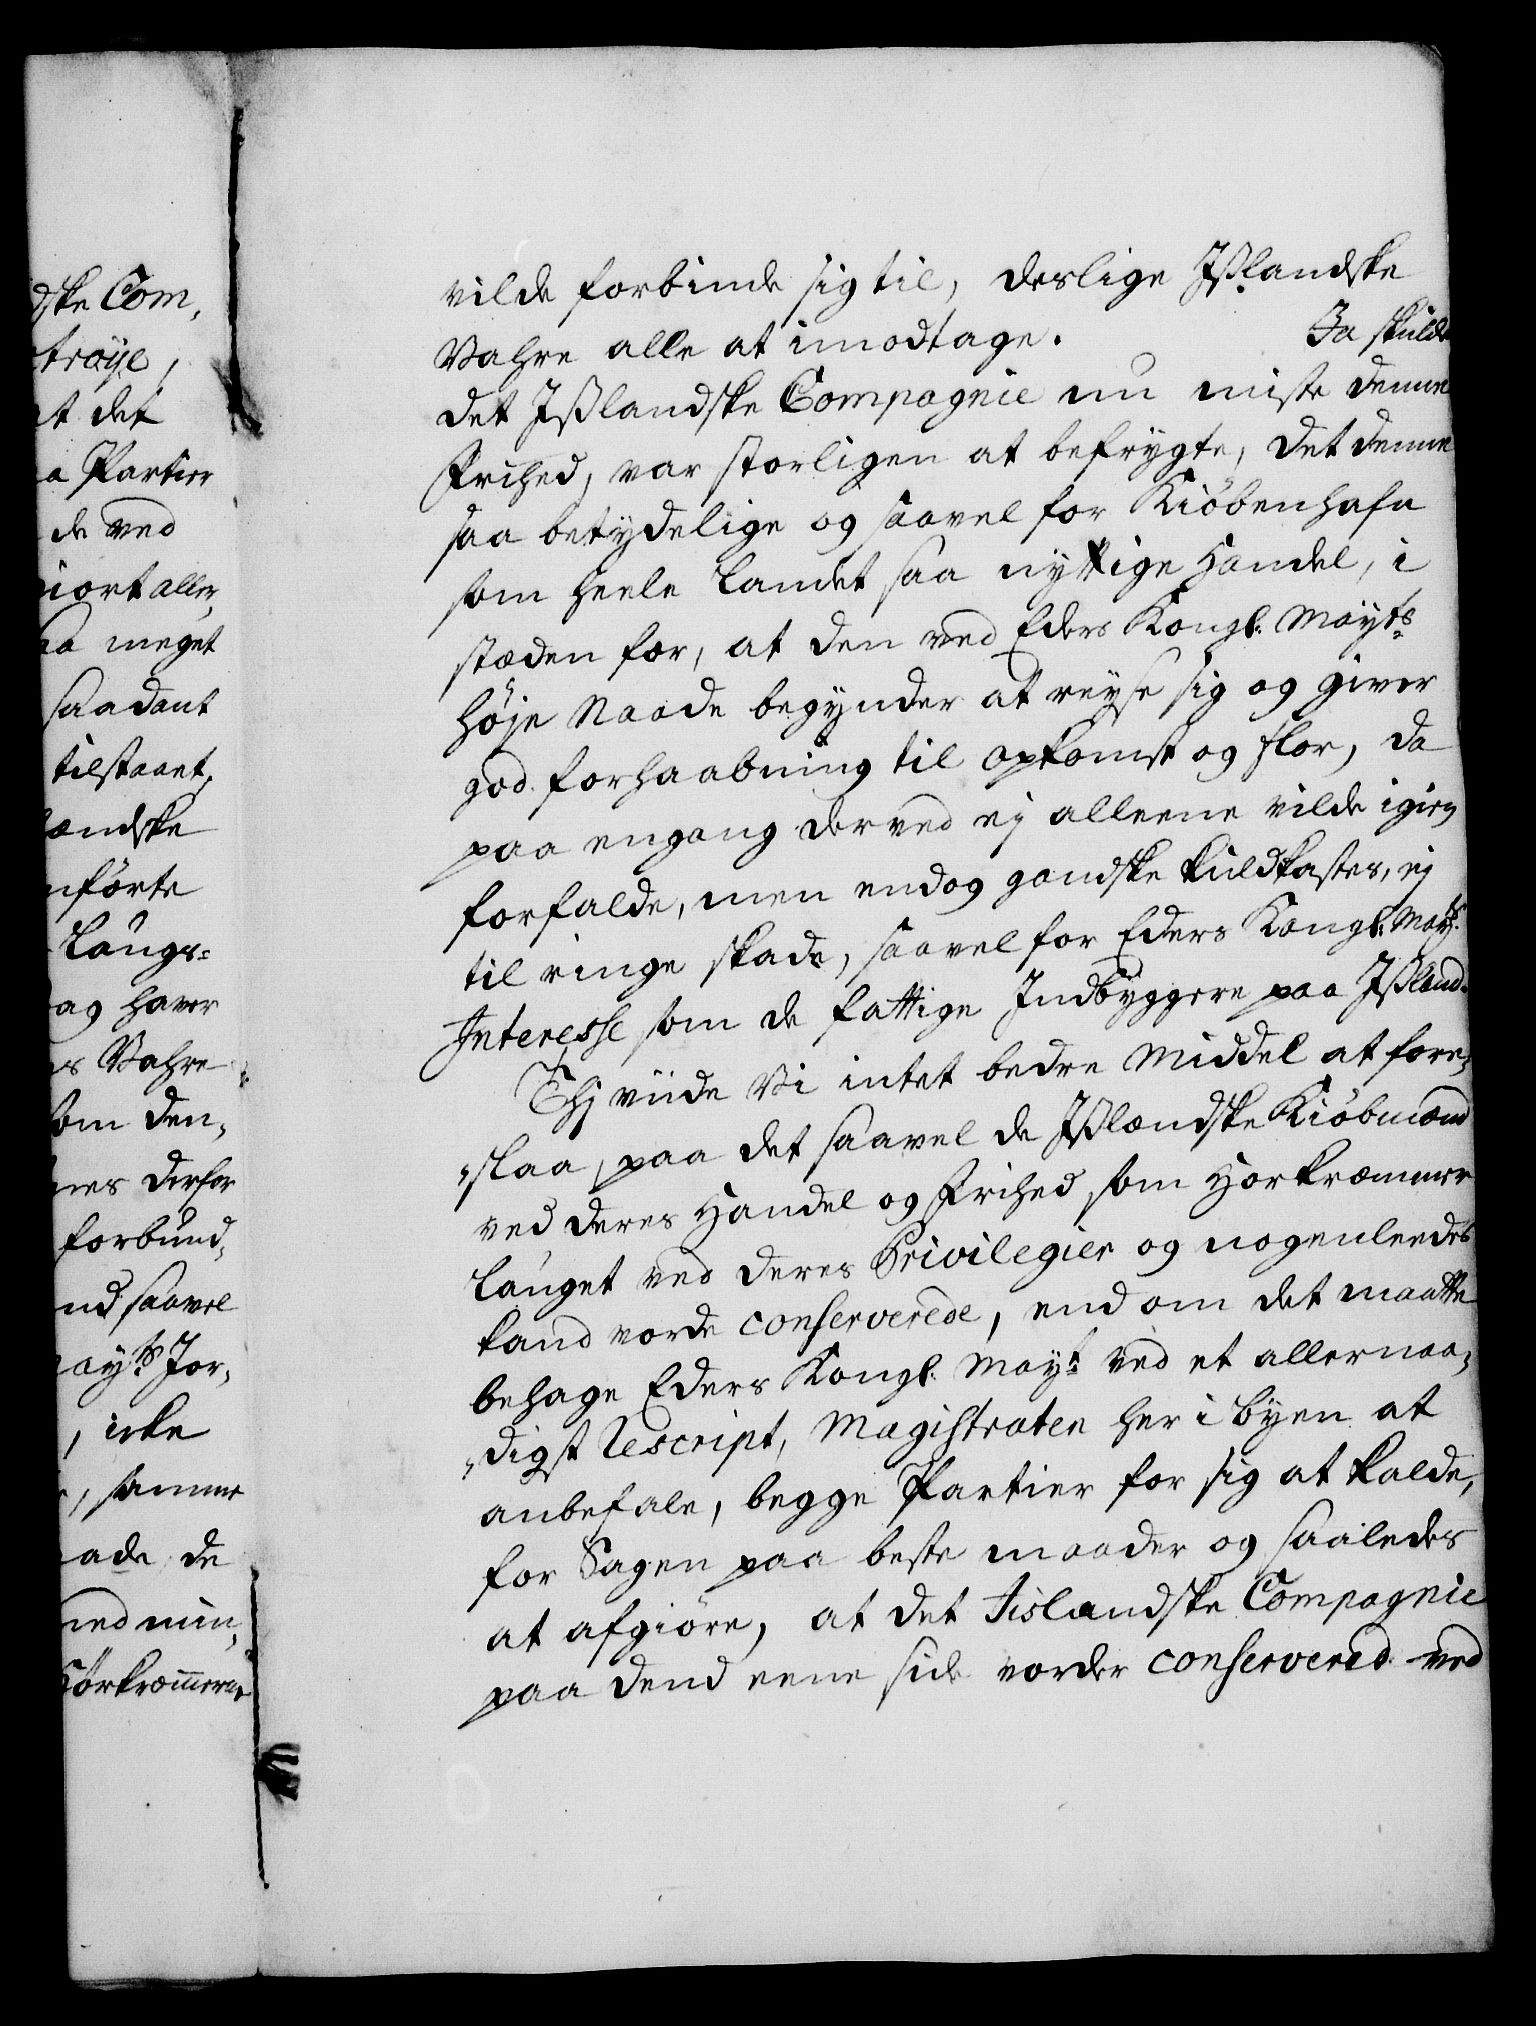 dske Com,
trøye,
at det
a Partier
de ved
giort aller,
saa meget
saadant
tilstaaet,
ændske
nførte
Laugs=
ag haver
s Vahre
som den,
nes derfor
forbund,
nd saavel
ayts Jor,
, icke
, samme
aade de
med min,
Hörkræmerne
vilde forbinde sig til, deslige Ißlandske
Vahre alle at imodtage. Ja skulde
det Ißlandske Compagnie nu miste denne
Frihed, var storligen at befrygte, det denne
saa betydelige og saavel for Kiöbenhafn
som heele Landet saa nyttige Handel, i
stæden for, at den ved Eders Kongl: Mayts
höje Naade begynder at reyse sig og giver
god forhaabning til opkomst og flor, da
paa engang derved ej alleene vilde igien
forfalde, men endog gandske kuldkastes, ej
til ringe skade, saavel for Eders Kongl: Mayts
Interesse som de fattige Indbyggere paa Ißland.
Thj viide Vi intet bedre Middel at fore,
„slaa, paa det saavel de Ißlændske Kiöbmænd
ved deres Handel og Frihed som Hörkræmmer
Lauget ved deres Privilegier og nogenleedes
kand vorde conserverede, end om det maatte
behage Eders Kongl: Mayt ved et allernaa,
„digst Rescript, Magistraten her i byen at
anbefale, begge Partier for sig at kalde,
for Sagen paa beste maader og saaledes
at afgiöre, at det Iislandske Compagnie
paa dend eene side vorder conservered ved